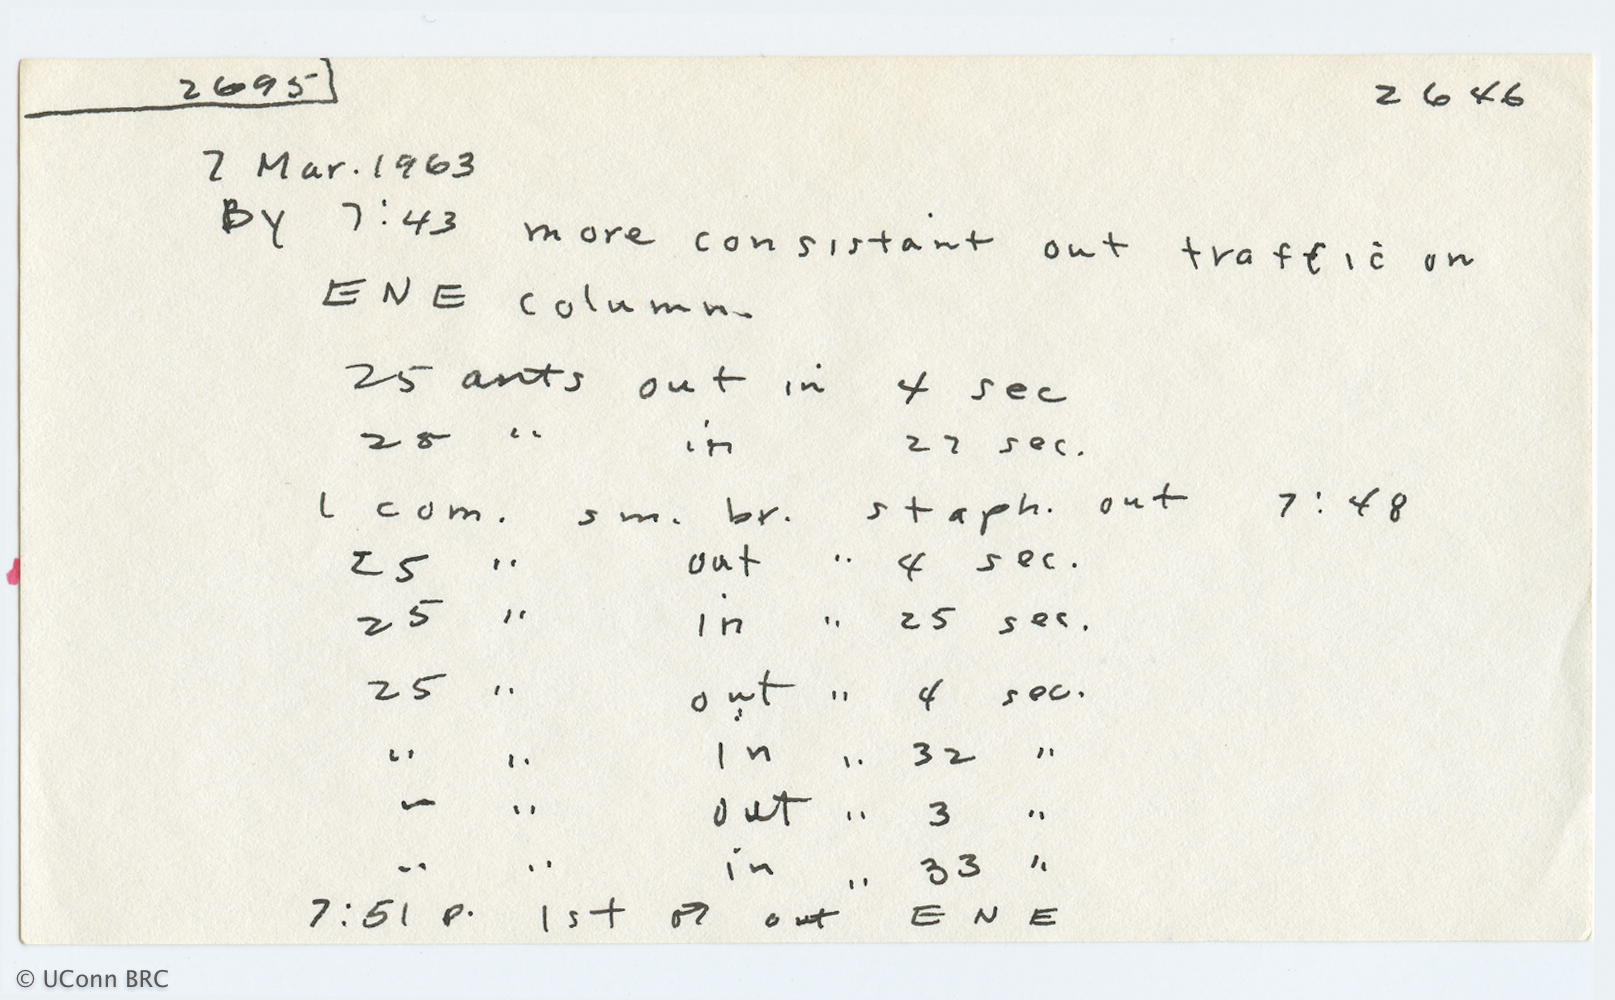 2695
2646
7 Mar. 1963
By 7:43 more consistant out traffic on
ENE column.
25 ants out in 4 sec
25 " in 27 sec.
1 com. sm. br. staph. out 7:48
25 " out " 4 sec.
25 " in " 25 sec.
25 " out " 4 sec.
" " in " 32 "
" " out " 3 "
" " in " 33 "
7:51 p. 1st ♂ out ENE
© UConn BRC